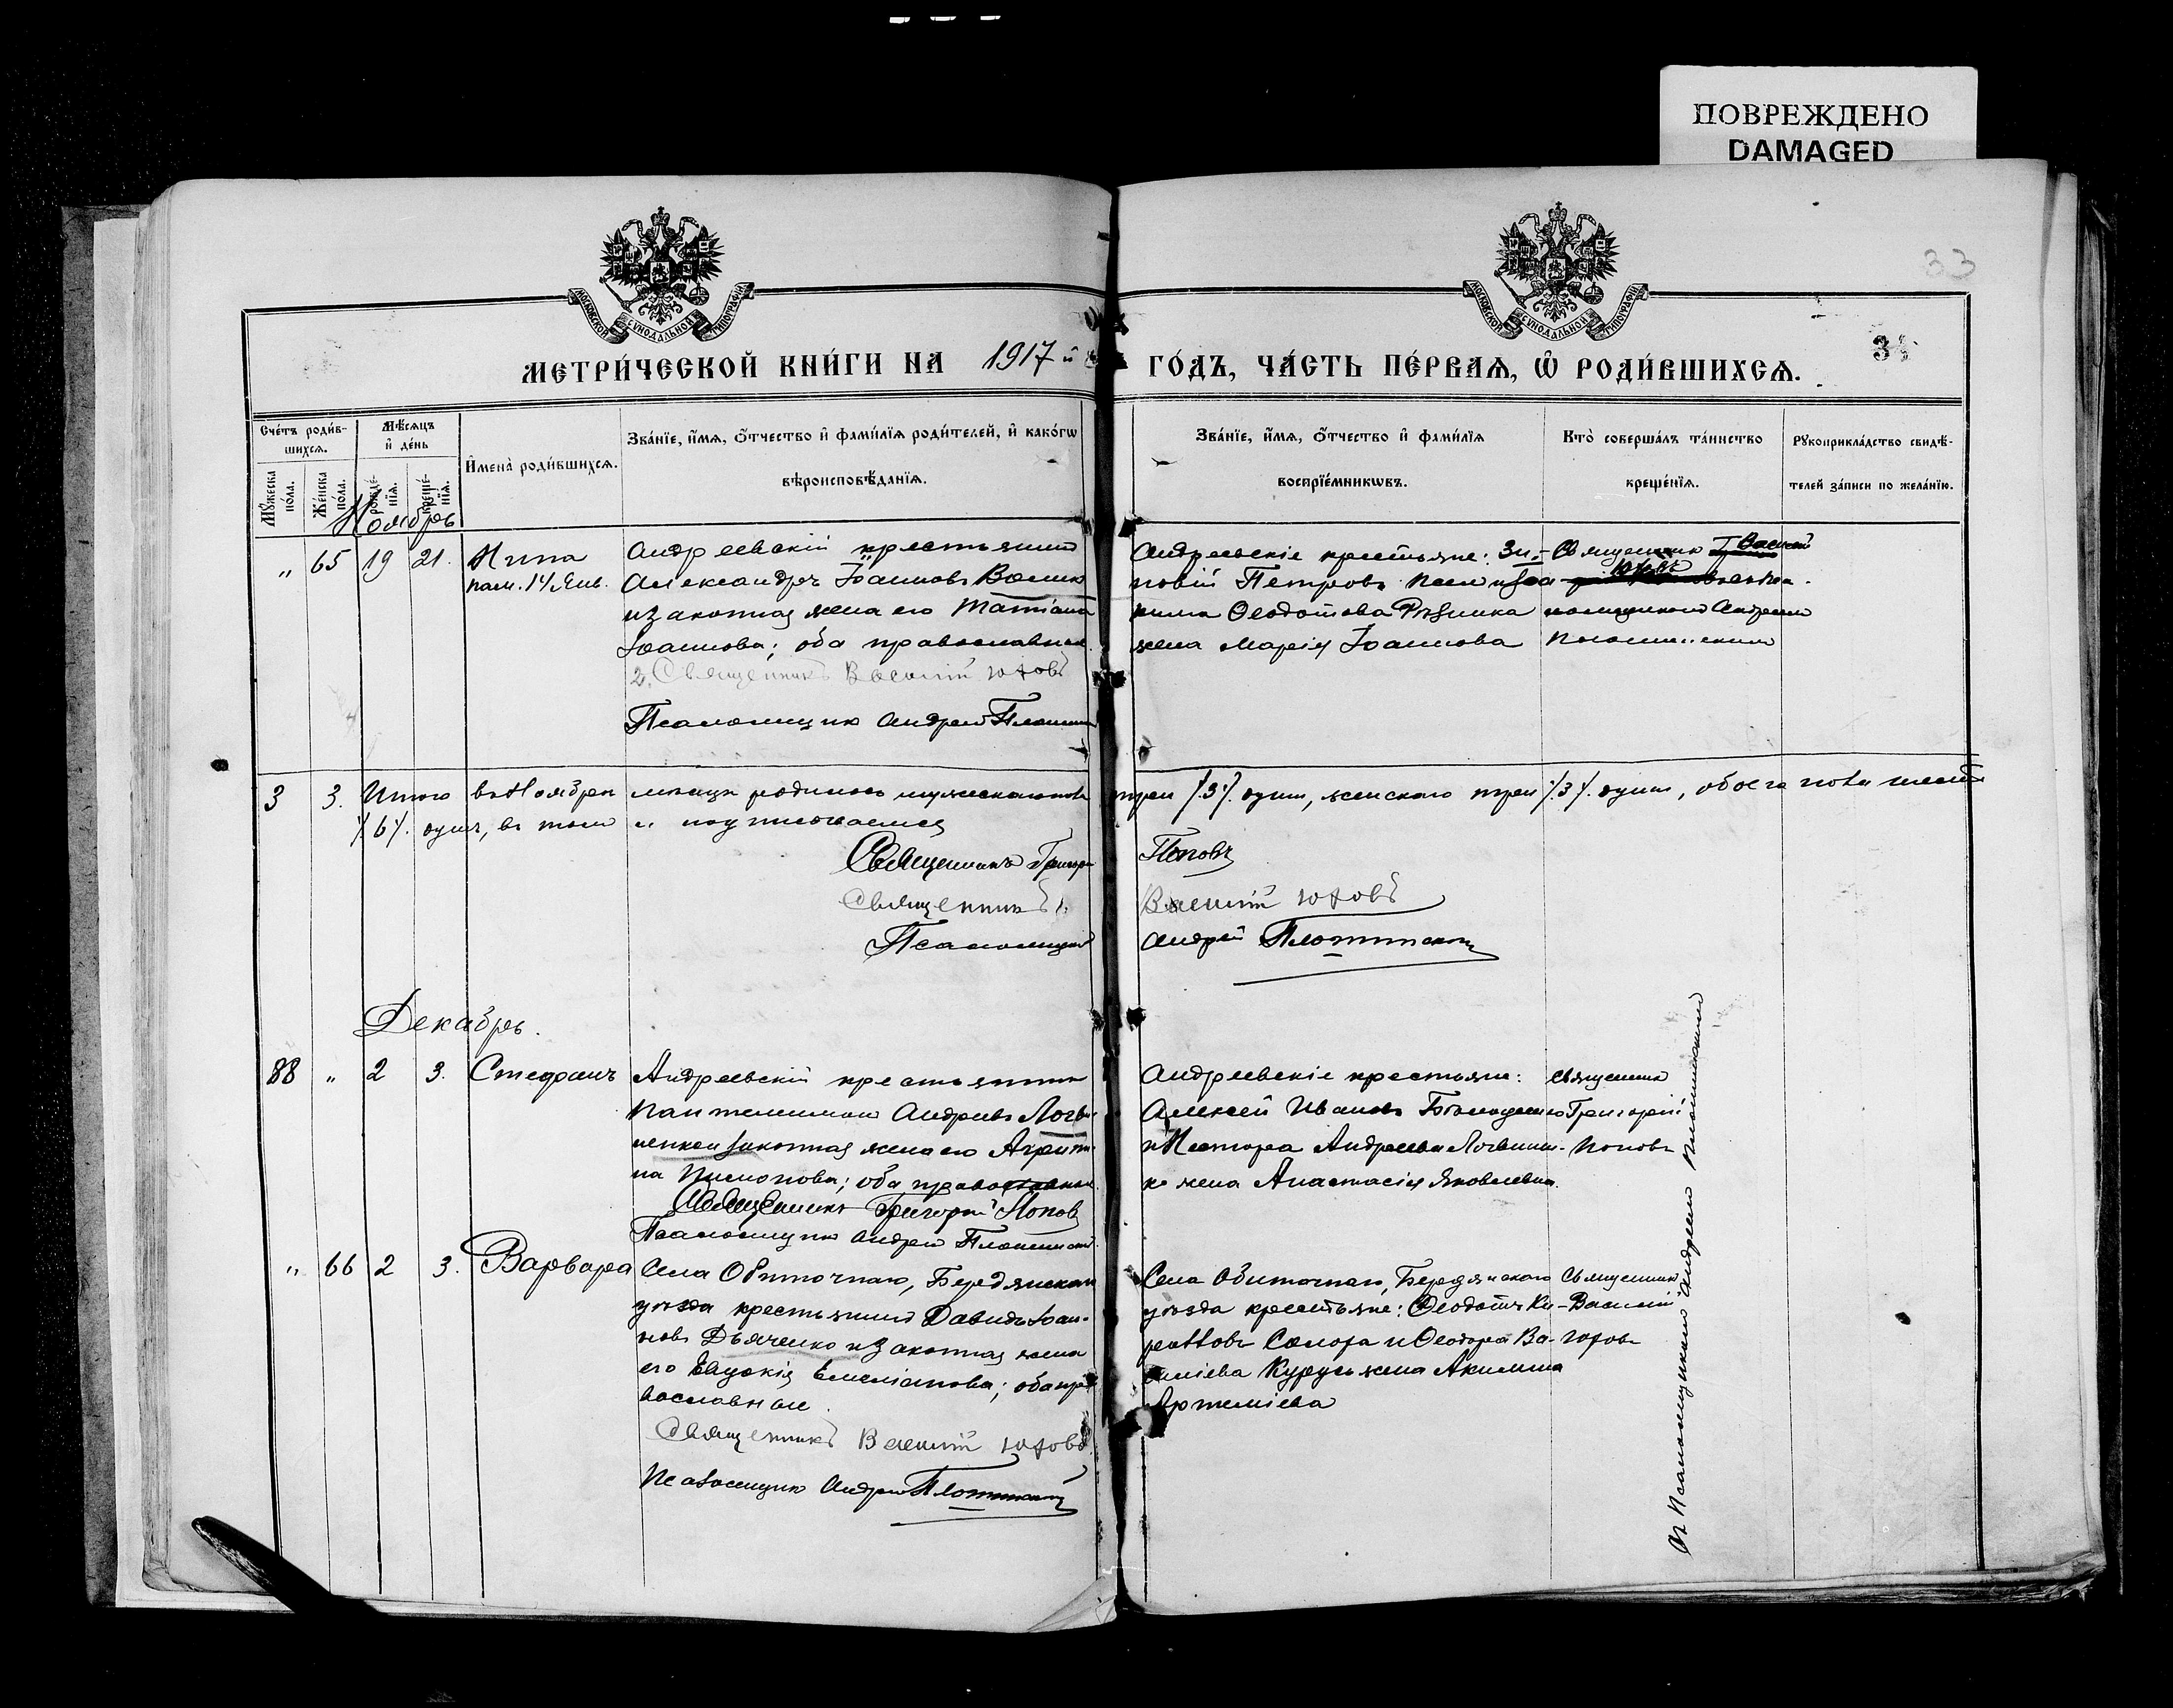 ПОВРЕЖДЕНО
DAMAGED
33
МОСКОВСКОЙ СѴНОДАЛЬНОЙ ТИПОГРАФІИ
МОСКОВСКОЙ СѴНОДАЛЬНОЙ ТИПОГРАФІИ
МЕТРИ́ЧЕСКОЙ КНИ́ГИ НА 1917 й ГО́ДЪ, ЧА́СТЬ ПЕ́РВАѦ, Ѡ РОДИ́ВШИХСѦ.
Сче́тъ роди́в-
шихсѧ.
Мꙋ́жеска по́ла.
Же́нска по́ла.
Мѣ́сѧцъ и҆ де́нь
рожде́-
нїѧ.
креще́-
нїѧ.
И҆мена̀ роди́вшихсѧ.
Зва́нїе, и҆́мѧ, ѻ҆́тчество и҆ фами́лїѧ роди́телей, и҆ како́гѡ
вѣроисповѣ́данїѧ.
Зва́нїе, и҆́мѧ, ѻ҆́тчество и҆ фами́лїѧ
воспрїе́мникѡвъ.
Кто̀ соверша́лъ та́инство
креще́нїѧ.
Рꙋкоприкла́дство свидѣ́-
телей за́писи по жела́нїю.
Ноябрь
" 65 19 21. Нина
пам. 14 Янв.
Андреевскій крестьянин
Александръ Іоаннов Волик
и законная жена его Татіана
Іоаннова; оба православные.
2. Священникъ Василій Юховъ
Псаломщик Андрей
Андреевскіе крестьяне: Зи-
новій Петровъ
Ѳеодотова
жена Марія Іоаннова
Священник Василій
Юховъ
псаломщиком Андреем
3 3. Итого въ Ноябрѣ мѣсяцѣ родилось мужескаго пола три /3/. душ, женскаго три /3/. душ, обоего пола шесть
/6/. душъ, въ томъ и подписываемся
Священникъ Григорій Поповъ
Священникъ Василій Юховъ
Псаломщик Андрей Плотинскій
Декабрь.
88 " 2 3. Стефанъ
Андреевскій крестьянин
Пантелеимон Андреевъ Логви-
ненко и законная жена его Агриппи-
на Пимонова; оба православные.
Священникъ Григорій Попов
Псаломщик Андрей Плотинскій
Андреевскіе крестьяне:
Алексей Иванов
и Нестора Андреева Логвинен-
ко жена Анастасія Яковлевна.
священник
Григорій
Поповъ
" 66 2 3. Варвара
Села Обиточнаго, Бердянскаго
уѣзда крестьянин Давидъ Іоан-
новъ Дьяченко и законная жена
его Евдокія Емеліанова; оба пра-
вославные.
Священникъ Василій Юховъ
Псаломщик Андрей Плотинскій
Села Обиточнаго, Бердянскаго
уѣзда крестьяне: Ѳеодотъ Ки-
реевъ и Ѳеодора Ва-
силіева жена Акилина
Артеміева
Священник
Василій
Юховъ
Съ Псаломщиком Андреем Плотинским